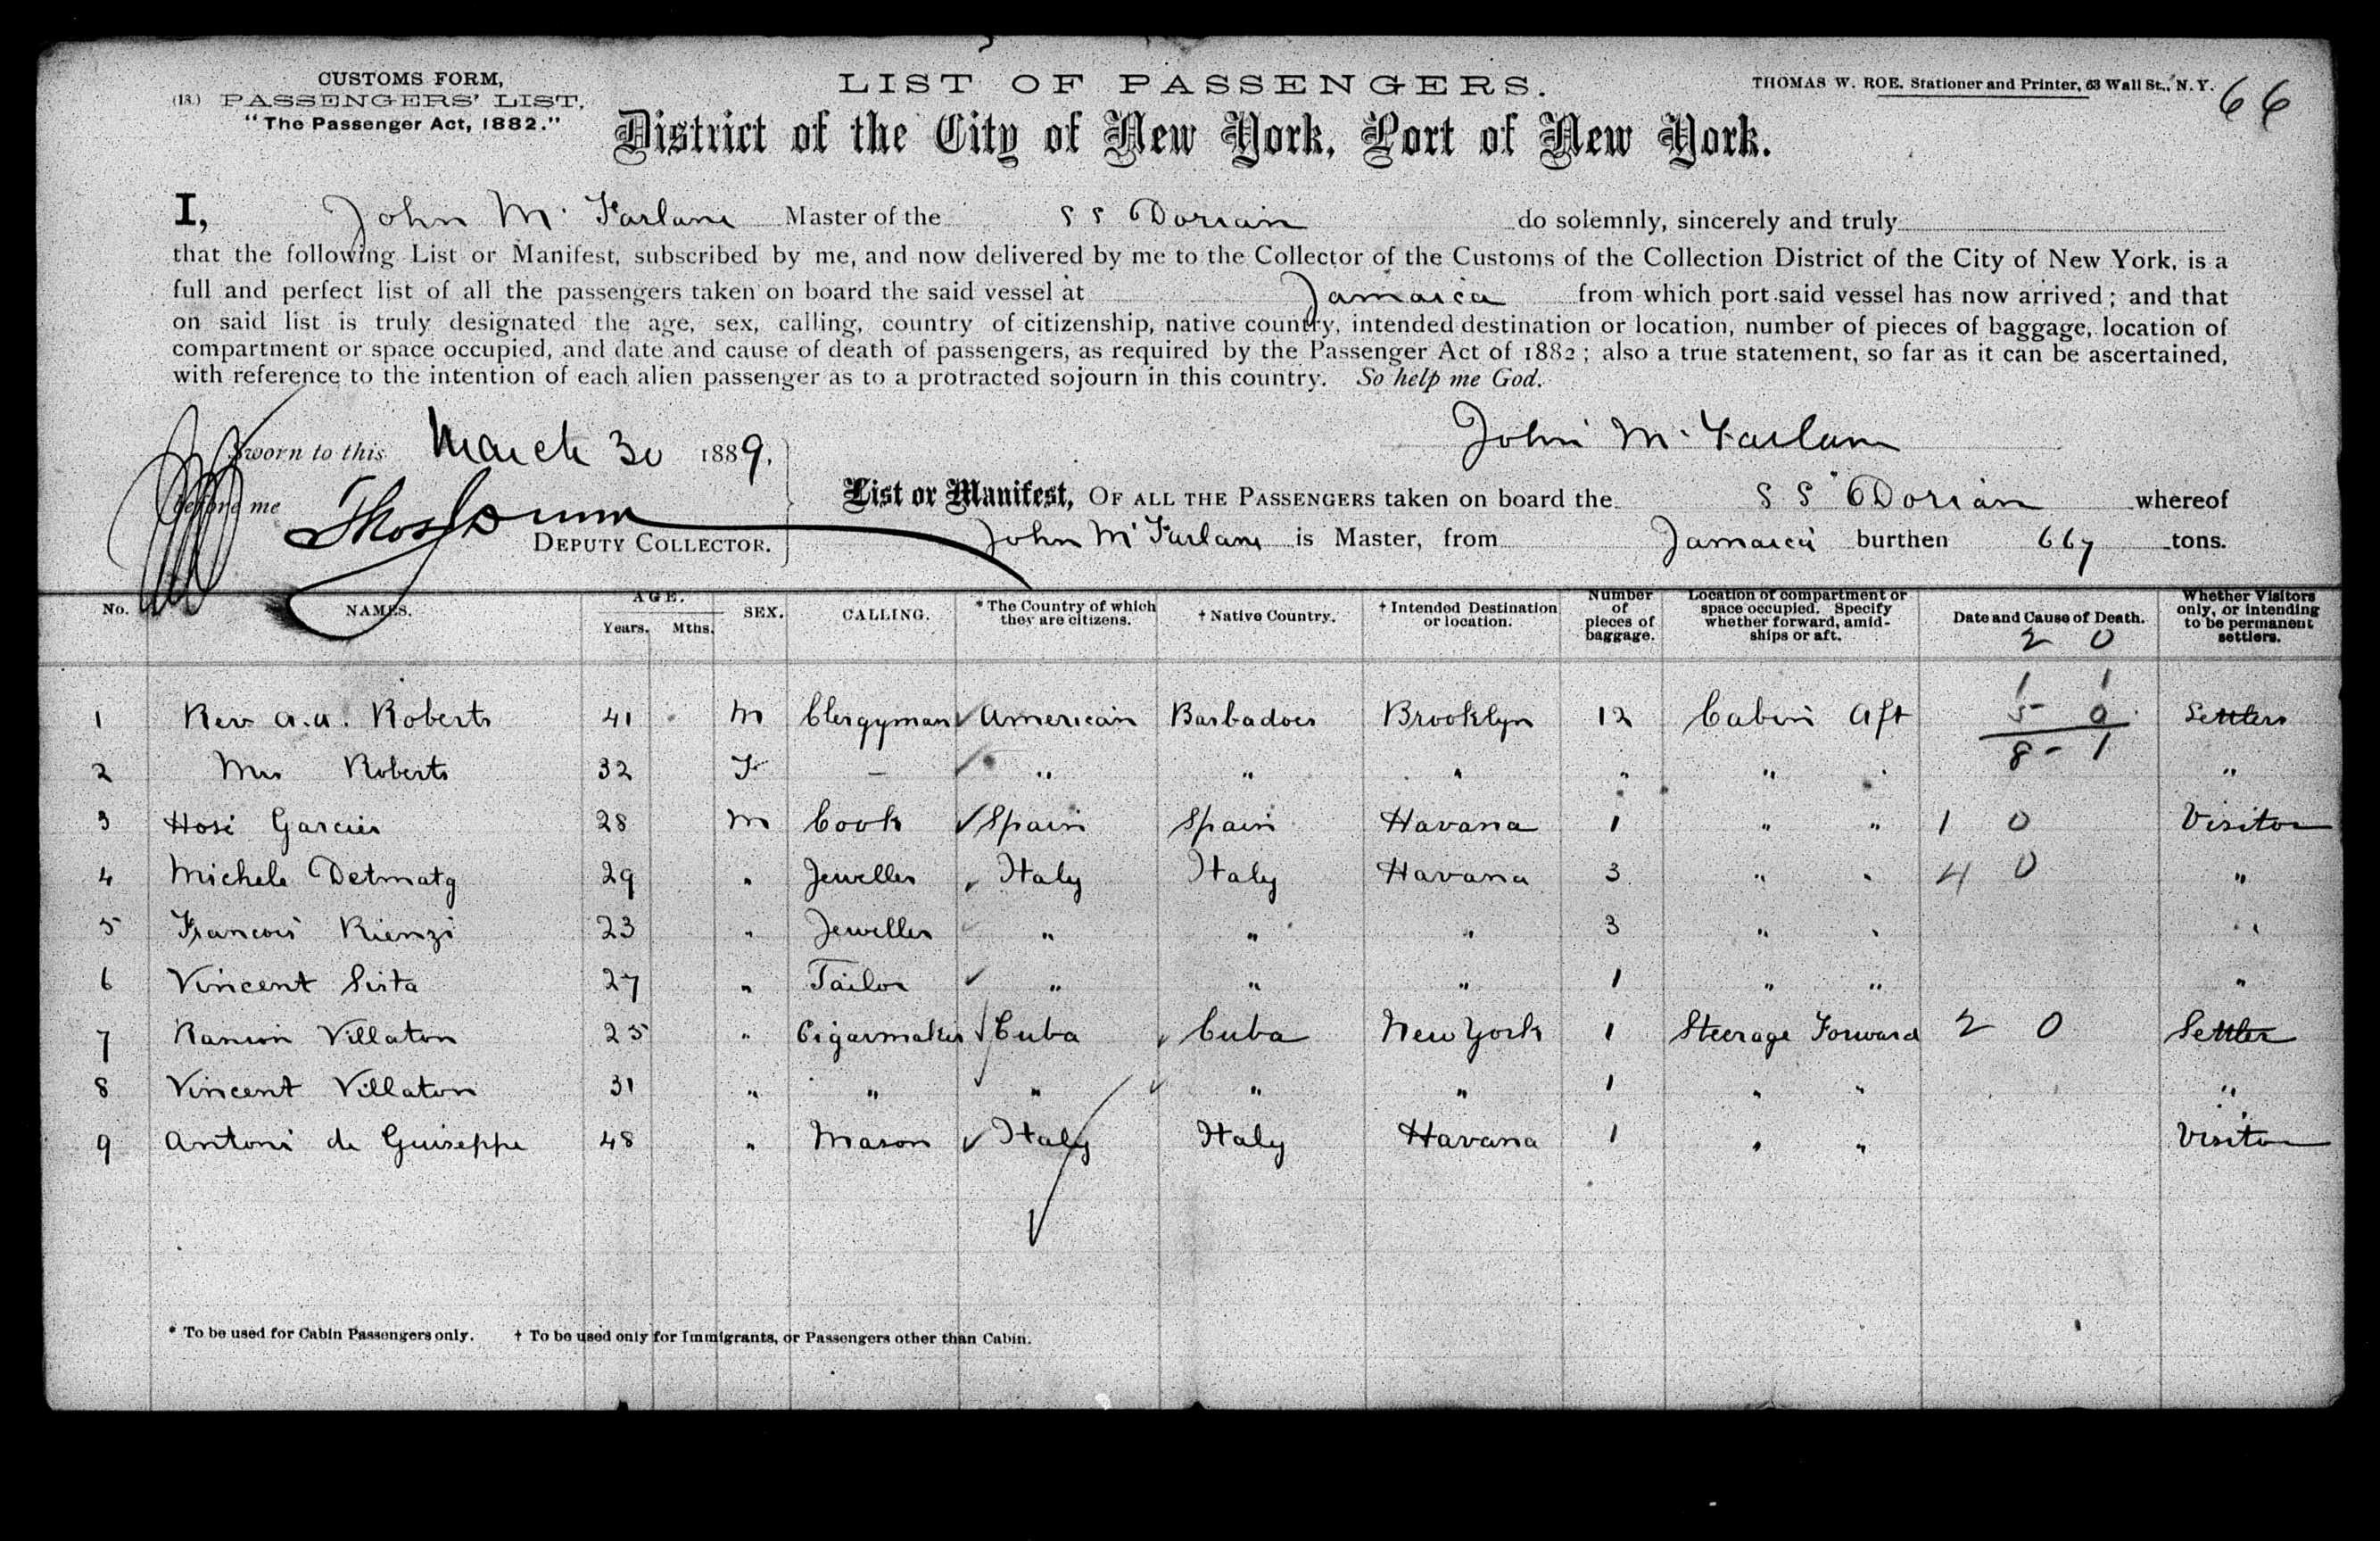 CUSTOMS FORM,
(13.) PASSENGERS' LIST.
"The Passenger Act, 1882."
LIST OF PASSENGERS.
THOMAS W. ROE. Stationer and Printer, 63 Wall St., N. Y.
66
District of the City of New York, Port of New York.
I, John McFarlane Master of the SS Dorian do solemnly, sincerely and truly
that the following List or Manifest, subscribed by me, and now delivered by me to the Collector of the Customs of the Collection District of the City of New York, is a
full and perfect list of all the passengers taken on board the said vessel at Jamaica from which port said vessel has now arrived; and that
on said list is truly designated the age, sex, calling, country of citizenship, native country, intended destination or location, number of pieces of baggage, location of
compartment or space occupied, and date and cause of death of passengers, as required by the Passenger Act of 1882; also a true statement, so far as it can be ascertained,
with reference to the intention of each alien passenger as to a protracted sojourn in this country. So help me God.
Sworn to this March 30 1889,
John McFarlane
before me
DEPUTY COLLECTOR.
List or Manifest, OF ALL THE PASSENGERS taken on board the SS "Dorian whereof
John McFarlane is Master, from Jamaica burthen 667 tons.
No. NAMES. AGE. Years. Mths. SEX. CALLING. * The Country of which they are citizens. † Native Country. † Intended Destination or location. Number of pieces of baggage. Location of compartment or space occupied. Specify whether forward, amidships or aft. Date and Cause of Death. Whether Visitors only, or intending to be permanent settlers.
2 0
1 1
1 Rev A.A. Roberts 41 M Clergyman American Barbadoes Brooklyn 12 Cabin Aft 5 0 Settlers
8 - 1
2 Mrs Roberts 32 F - " " " " " " "
3 Hosé Garcier 28 M Cook Spain Spain Havana 1 " " 1 0 Visitor
4 Michele Detmatg 29 " Jeweller Italy Italy Havana 3 " " 4 0 "
5 Francois Rienzi 23 " Jeweller " " " 3 " " "
6 Vincent Sista 27 " Tailor " " " 1 " " "
7 Ramon Villaton 25 " Cigarmaker Cuba Cuba New York 1 Steerage Forward 2 0 Settler
8 Vincent Villaton 31 " " " " " 1 " " "
9 Antoni de Guiseppe 48 " Mason Italy Italy Havana 1 " " Visitor
* To be used for Cabin Passengers only. † To be used only for Immigrants, or Passengers other than Cabin.